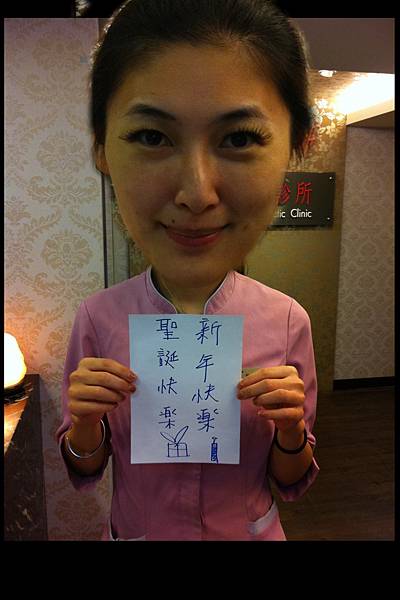 診所
Clinic
新年快樂
聖誕快樂